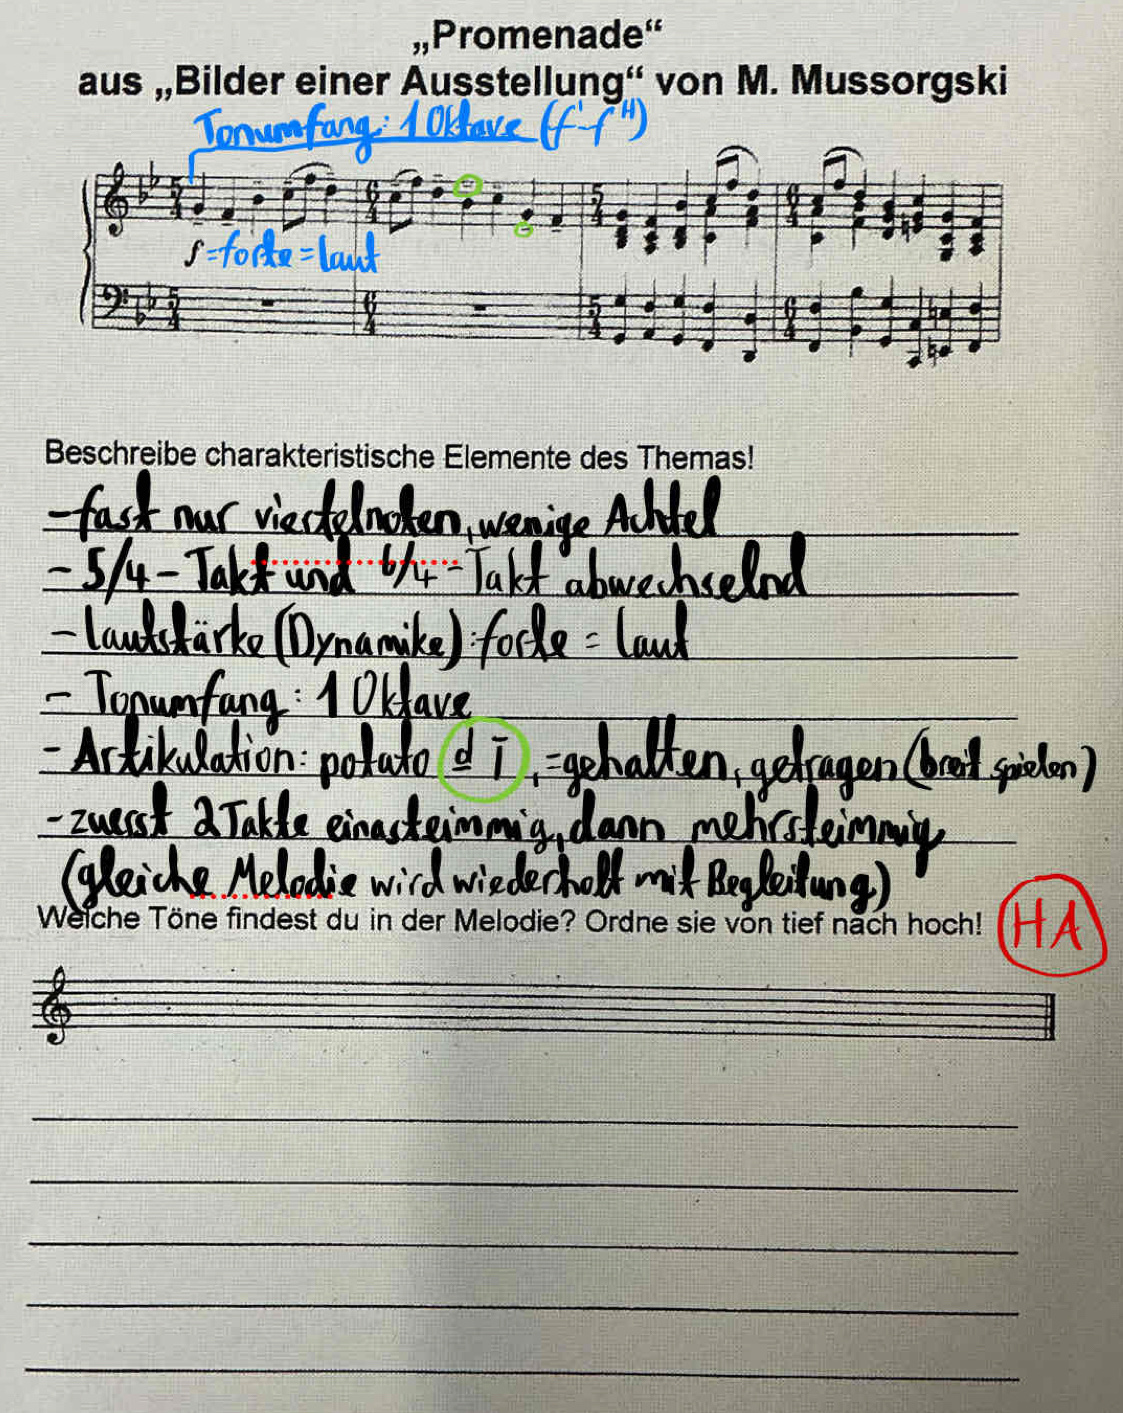 „Promenade“
aus „Bilder einer Ausstellung“ von M. Mussorgski
Tonumfang: 1 Oktave (f'-f'')
f = forte = laut
Beschreibe charakteristische Elemente des Themas!
- fast nur viertelnoten, wenige Achtel
- 5/4 - Takt und 6/4 - Takt abwechselnd
- lautstärke (Dynamike): forte = laut
- Tonumfang: 1 Oktave
- Artikulation: potato d̲ Ī, = gehalten, getragen (breit spielen)
- zuerst 2 Takte einasteimmig, dann mehrsteimmig
(gleiche Melodie wird wiederholt mit Begleitung)
Welche Töne findest du in der Melodie? Ordne sie von tief nach hoch!
HA